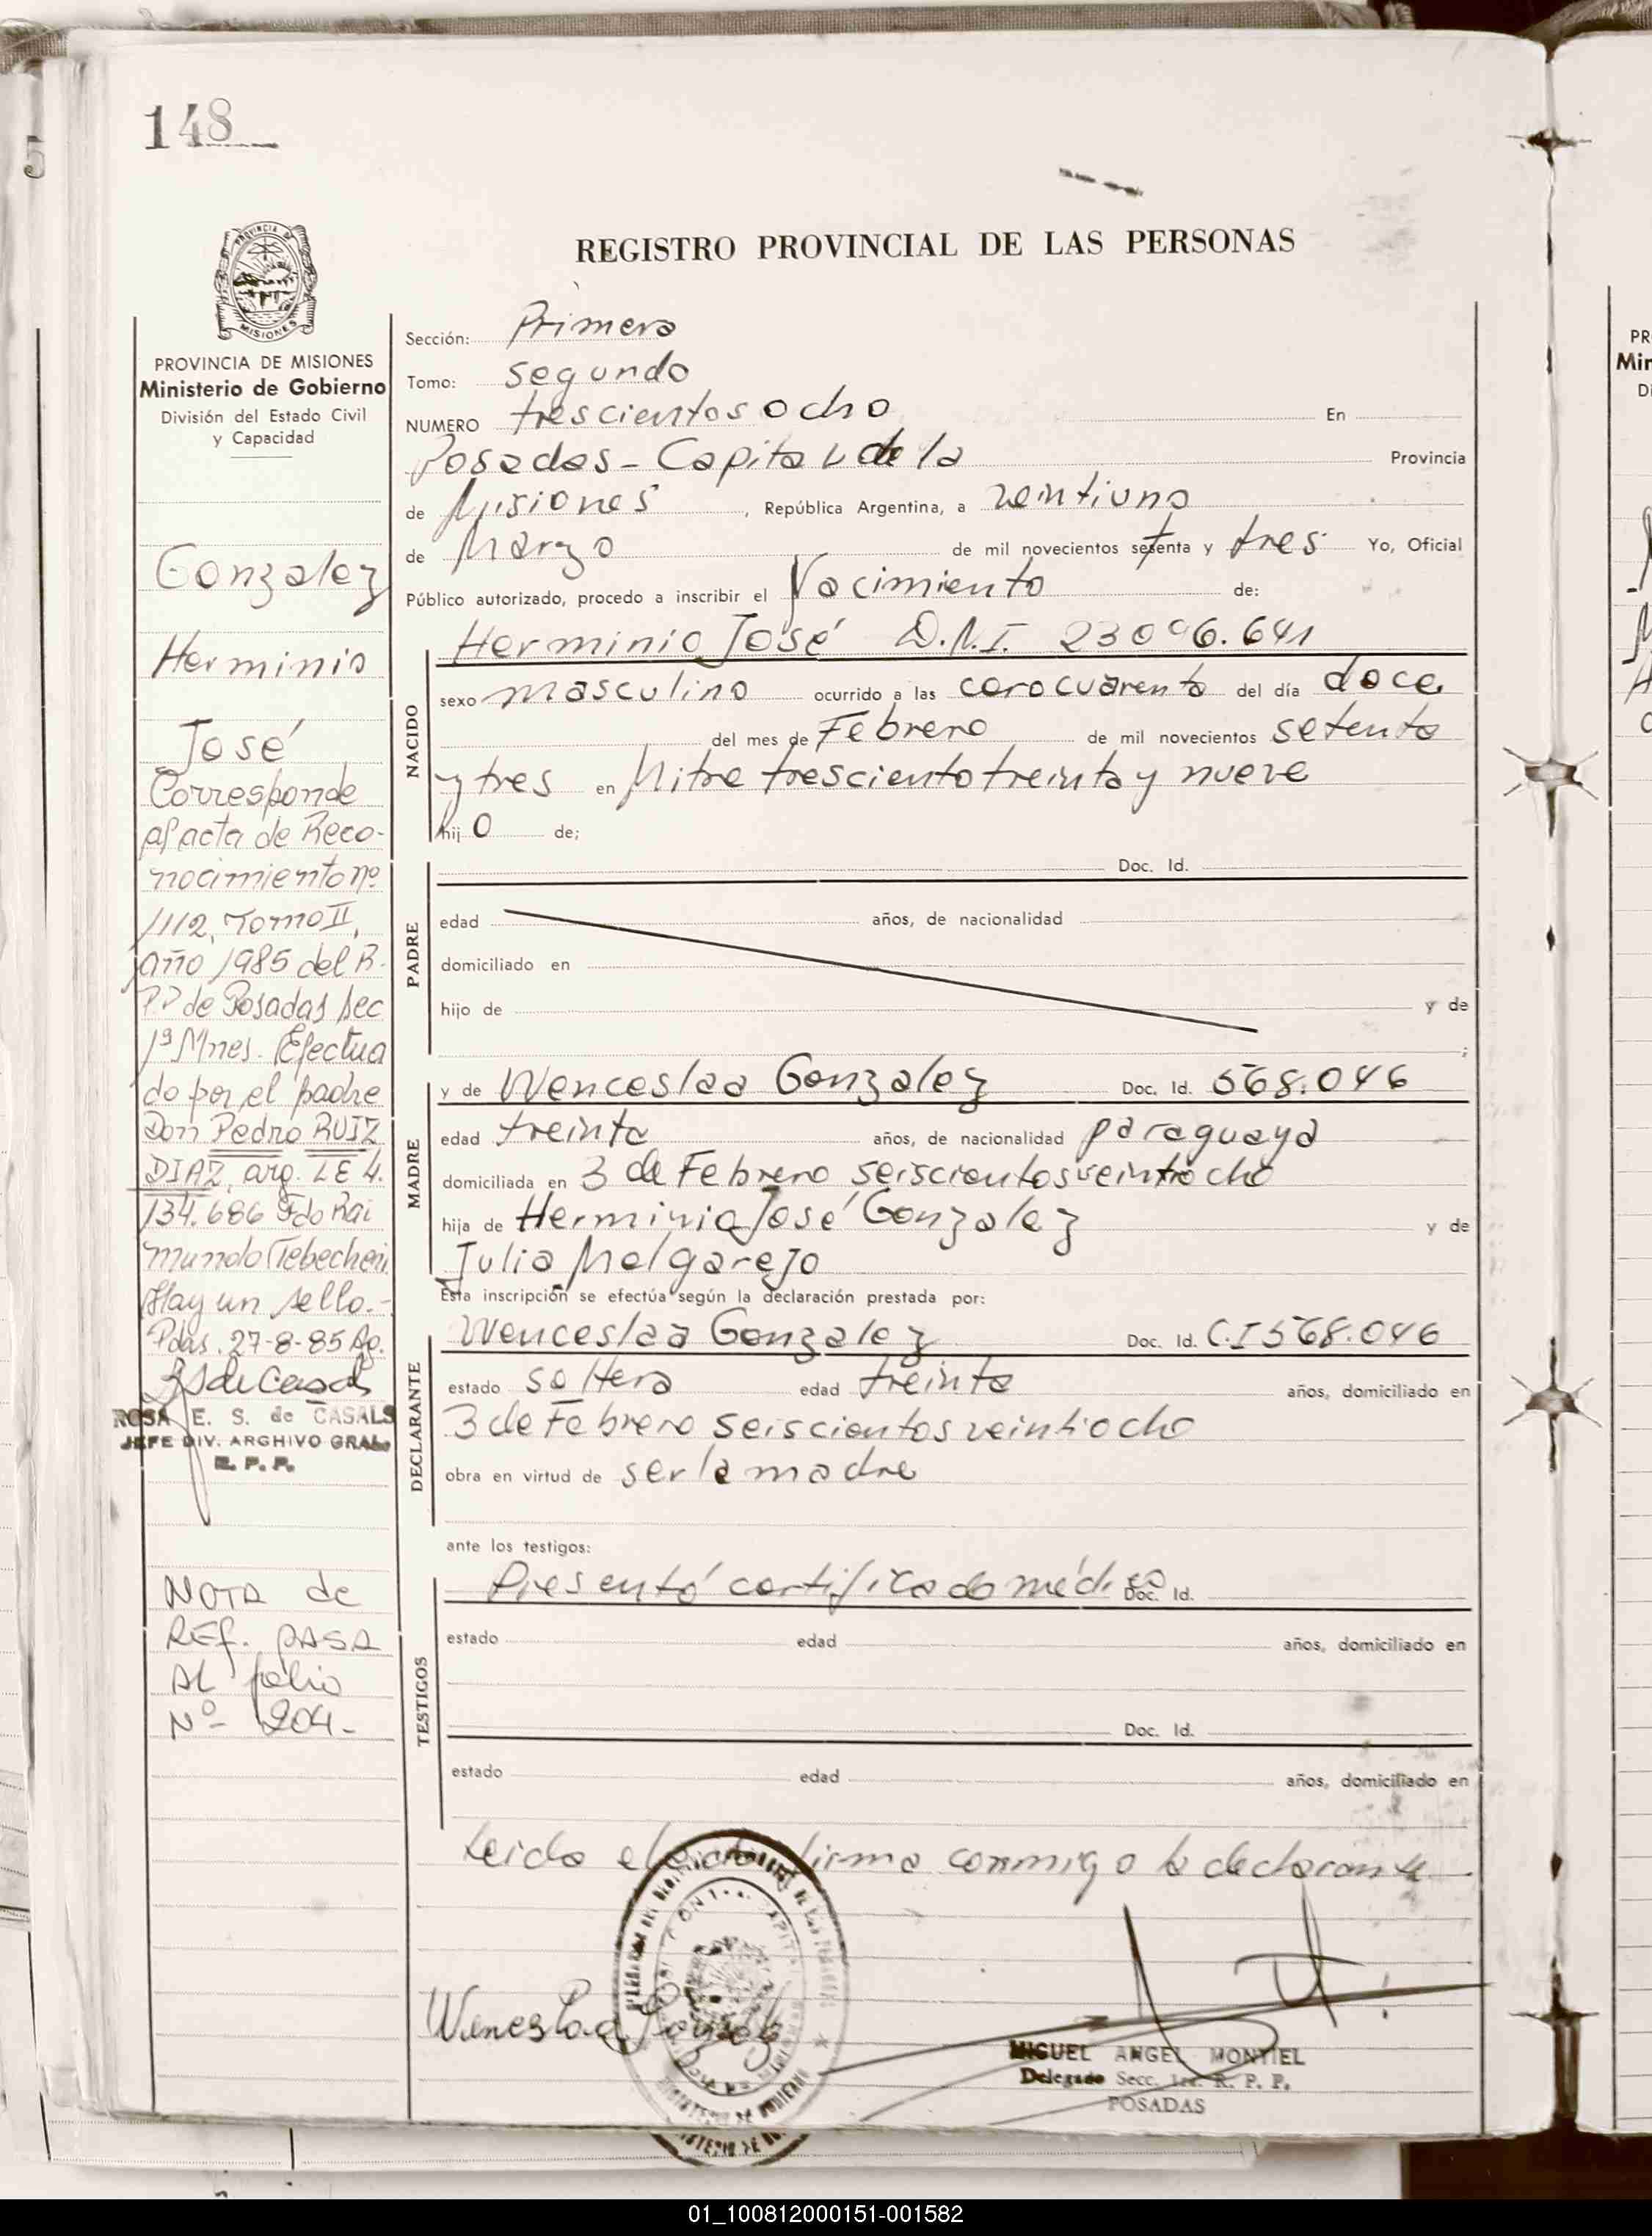 148
REGISTRO PROVINCIAL DE LAS PERSONAS
MISIONES
PROVINCIA DE MISIONES
Ministerio de Gobierno
División del Estado Civil
y Capacidad
Gonzalez
Herminio
José
Corresponde
al acta de Reco-
nocimiento nº
1112, Tomo II,
año 1985 del R.
P.P de Posadas Sec
1ª Mnes. Efectua
do por el padre
Don Pedro RUIZ
DIAZ, arg. LE 4.
134.686 Fdo Rai
mundo
Hay un sello.-
Pdas. 27-8-85
ROSA E. S. de CASALS
JEFE DIV. ARCHIVO GRAL.
R. P. P.
NOTA de
REF. PASA
AL folio
Nº- 204-
Sección: Primera
Tomo: segundo
NUMERO trescientos ocho En
Posadas - Capital de la Provincia
de Misiones, República Argentina, a veintiuno
de Marzo de mil novecientos setenta y tres Yo, Oficial
Público autorizado, procedo a inscribir el Nacimiento de:
NACIDO
Herminio José D.N.I. 23096.641
sexo masculino ocurrido a las cerocuarenta del día doce
del mes de Febrero de mil novecientos setenta
y tres en Mitre tresciento treinta y nueve
hijo de;
PADRE
Doc. Id.
edad años, de nacionalidad
domiciliado en
hijo de y de
;
MADRE
y de Wenceslaa Gonzalez Doc. Id. 568.046
edad treinta años, de nacionalidad paraguaya
domiciliada en 3 de Febrero seiscientos veintiocho
hija de Herminio José Gonzalez y de
Julia Melgarejo
Esta inscripción se efectúa según la declaración prestada por:
DECLARANTE
Wenceslaa Gonzalez Doc. Id. C.I 568.046
estado soltera edad treinta años, domiciliado en
3 de Febrero seiscientos veintiocho
obra en virtud de ser la madre
ante los testigos:
TESTIGOS
Presentó certificado médico Doc. Id.
estado edad años, domiciliado en
Doc. Id.
estado edad años, domiciliado en
Leida el acta firma conmigo la declarante.
MIGUEL ANGEL MONTIEL
Delegado Secc. 1ra. R. P. P.
POSADAS
01_100812000151-001582